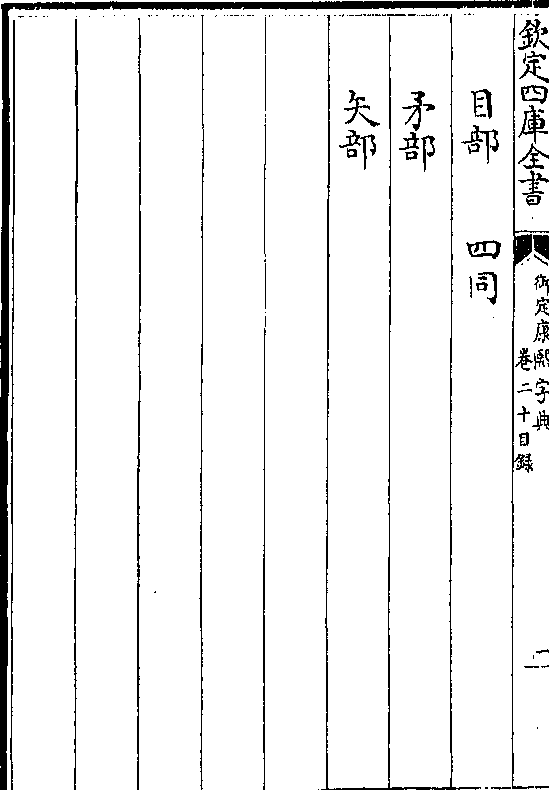 欽定四庫全書
御定康熙字典
卷二十目録
目部 四同
矛部
矢部